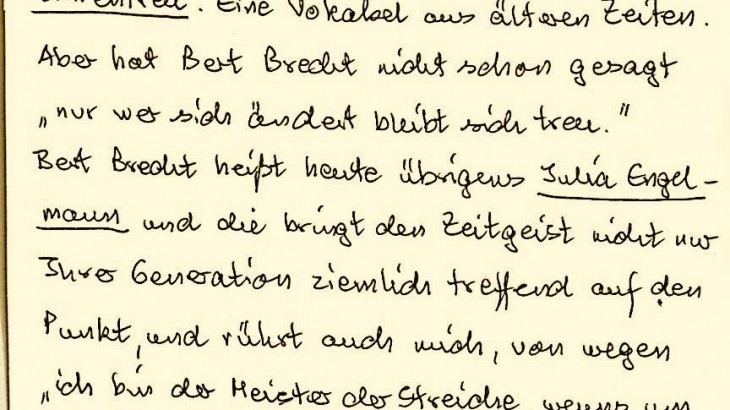 . Eine Vokabel aus älteren Zeiten.
Aber hat Bert Brecht nicht schon gesagt
„nur wer sich ändert bleibt sich treu."
Bert Brecht heißt heute übrigens Julia Engel-
mann und die bringt den Zeitgeist nicht nur
Ihrer Generation ziemlich treffend auf den
Punkt, und rührt auch mich, von wegen
„ich bin der Meister der Streiche, wenns um